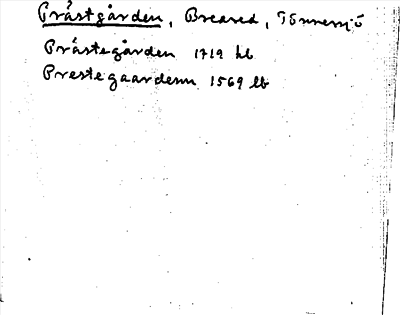 Prästgården, Breared, Tönnersjö
Prästegården 1719 hb
Prestegaardenn 1569 lb